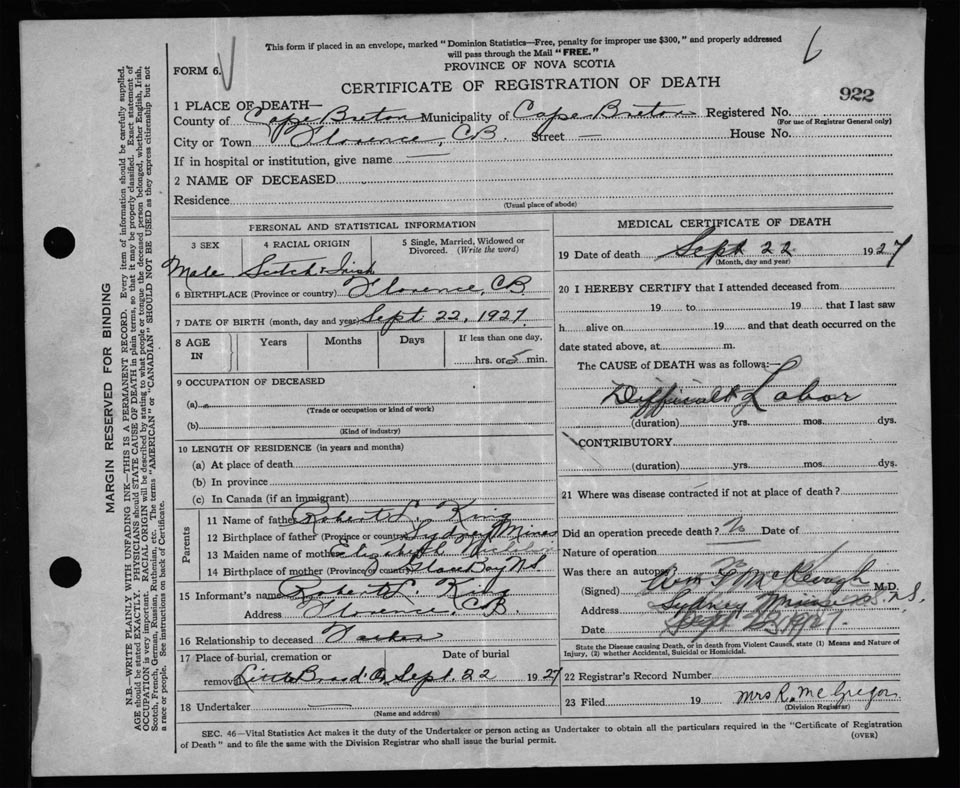 This form if placed in an envelope, marked "Dominion Statistics—Free, penalty for improper use $300," and properly addressed
will pass through the Mail "FREE."
6
FORM 6.
PROVINCE OF NOVA SCOTIA
CERTIFICATE OF REGISTRATION OF DEATH
922
1 PLACE OF DEATH—
County of Cape Breton Municipality of Cape Breton Registered No.
(For use of Registrar General only)
City or Town Florence, C.B. Street — House No.
If in hospital or institution, give name —
2 NAME OF DECEASED
Residence
(Usual place of abode)
PERSONAL AND STATISTICAL INFORMATION
3 SEX 4 RACIAL ORIGIN 5 Single, Married, Widowed or Divorced. (Write the word)
Male Scotch & Irish
6 BIRTHPLACE (Province or country) Florence, CB
7 DATE OF BIRTH (month, day and year) Sept 22, 1927
8 AGE IN Years Months Days If less than one day.
hrs. or 5 min.
9 OCCUPATION OF DECEASED
(a)
(Trade or occupation or kind of work)
(b)
(Kind of industry)
10 LENGTH OF RESIDENCE (in years and months)
(a) At place of death
(b) In province
(c) In Canada (if an immigrant)
Parents
11 Name of father Robert L. King
12 Birthplace of father (Province or country) Sydney Mines
13 Maiden name of mother Elizabeth
14 Birthplace of mother (Province or country) Glace Bay N.S.
15 Informant's name Robert L. King
Address Florence, C.B.
16 Relationship to deceased Father
17 Place of burial, cremation or Date of burial
removal Little Bras d'Or Sept. 22 1927
18 Undertaker —
(Name and address)
MEDICAL CERTIFICATE OF DEATH
19 Date of death Sept 22 1927
(Month, day and year)
20 I HEREBY CERTIFY that I attended deceased from
19 to 19 that I last saw
h alive on 19 and that death occurred on
date stated above, at m.
The CAUSE of DEATH was as follows:—
Difficult Labor
(duration) yrs. mos. dys.
CONTRIBUTORY
(duration) yrs. mos. dys.
21 Where was disease contracted if not at place of death?
Did an operation precede death? No Date of
Nature of operation
Was there an autopsy
(Signed) Wm F McKeough M.D.
Address Sydney Mines N.S.
Date Sept 1927.
State the Disease causing Death, or in death from Violent Causes, state (1) Means and Nature of
Injury, (2) whether Accidental, Suicidal or Homicidal.
22 Registrar's Record Number
23 Filed 19 Mrs R. McGregor
(Division Registrar)
SEC. 46—Vital Statistics Act makes it the duty of the Undertaker or person acting as Undertaker to obtain all the particulars required in the "Certificate of Registration
of Death" and to file the same with the Division Registrar who shall issue the burial permit.
(OVER)
MARGIN RESERVED FOR BINDING
N.B.—WRITE PLAINLY WITH UNFADING INK—THIS IS A PERMANENT RECORD. Every item of information should be carefully supplied.
AGE should be stated EXACTLY. PHYSICIANS should STATE CAUSE OF DEATH in plain terms, so that it may be properly classified. Exact statement of
OCCUPATION is very important. RACIAL ORIGIN will be described by stating to what people or tongue the deceased person belonged, whether English, Irish,
Scotch, French, German, Russian, Ruthenian, etc. The terms "AMERICAN" or "CANADIAN" SHOULD NOT BE USED as they express citizenship but not
a race or people. See instructions on back of Certificate.